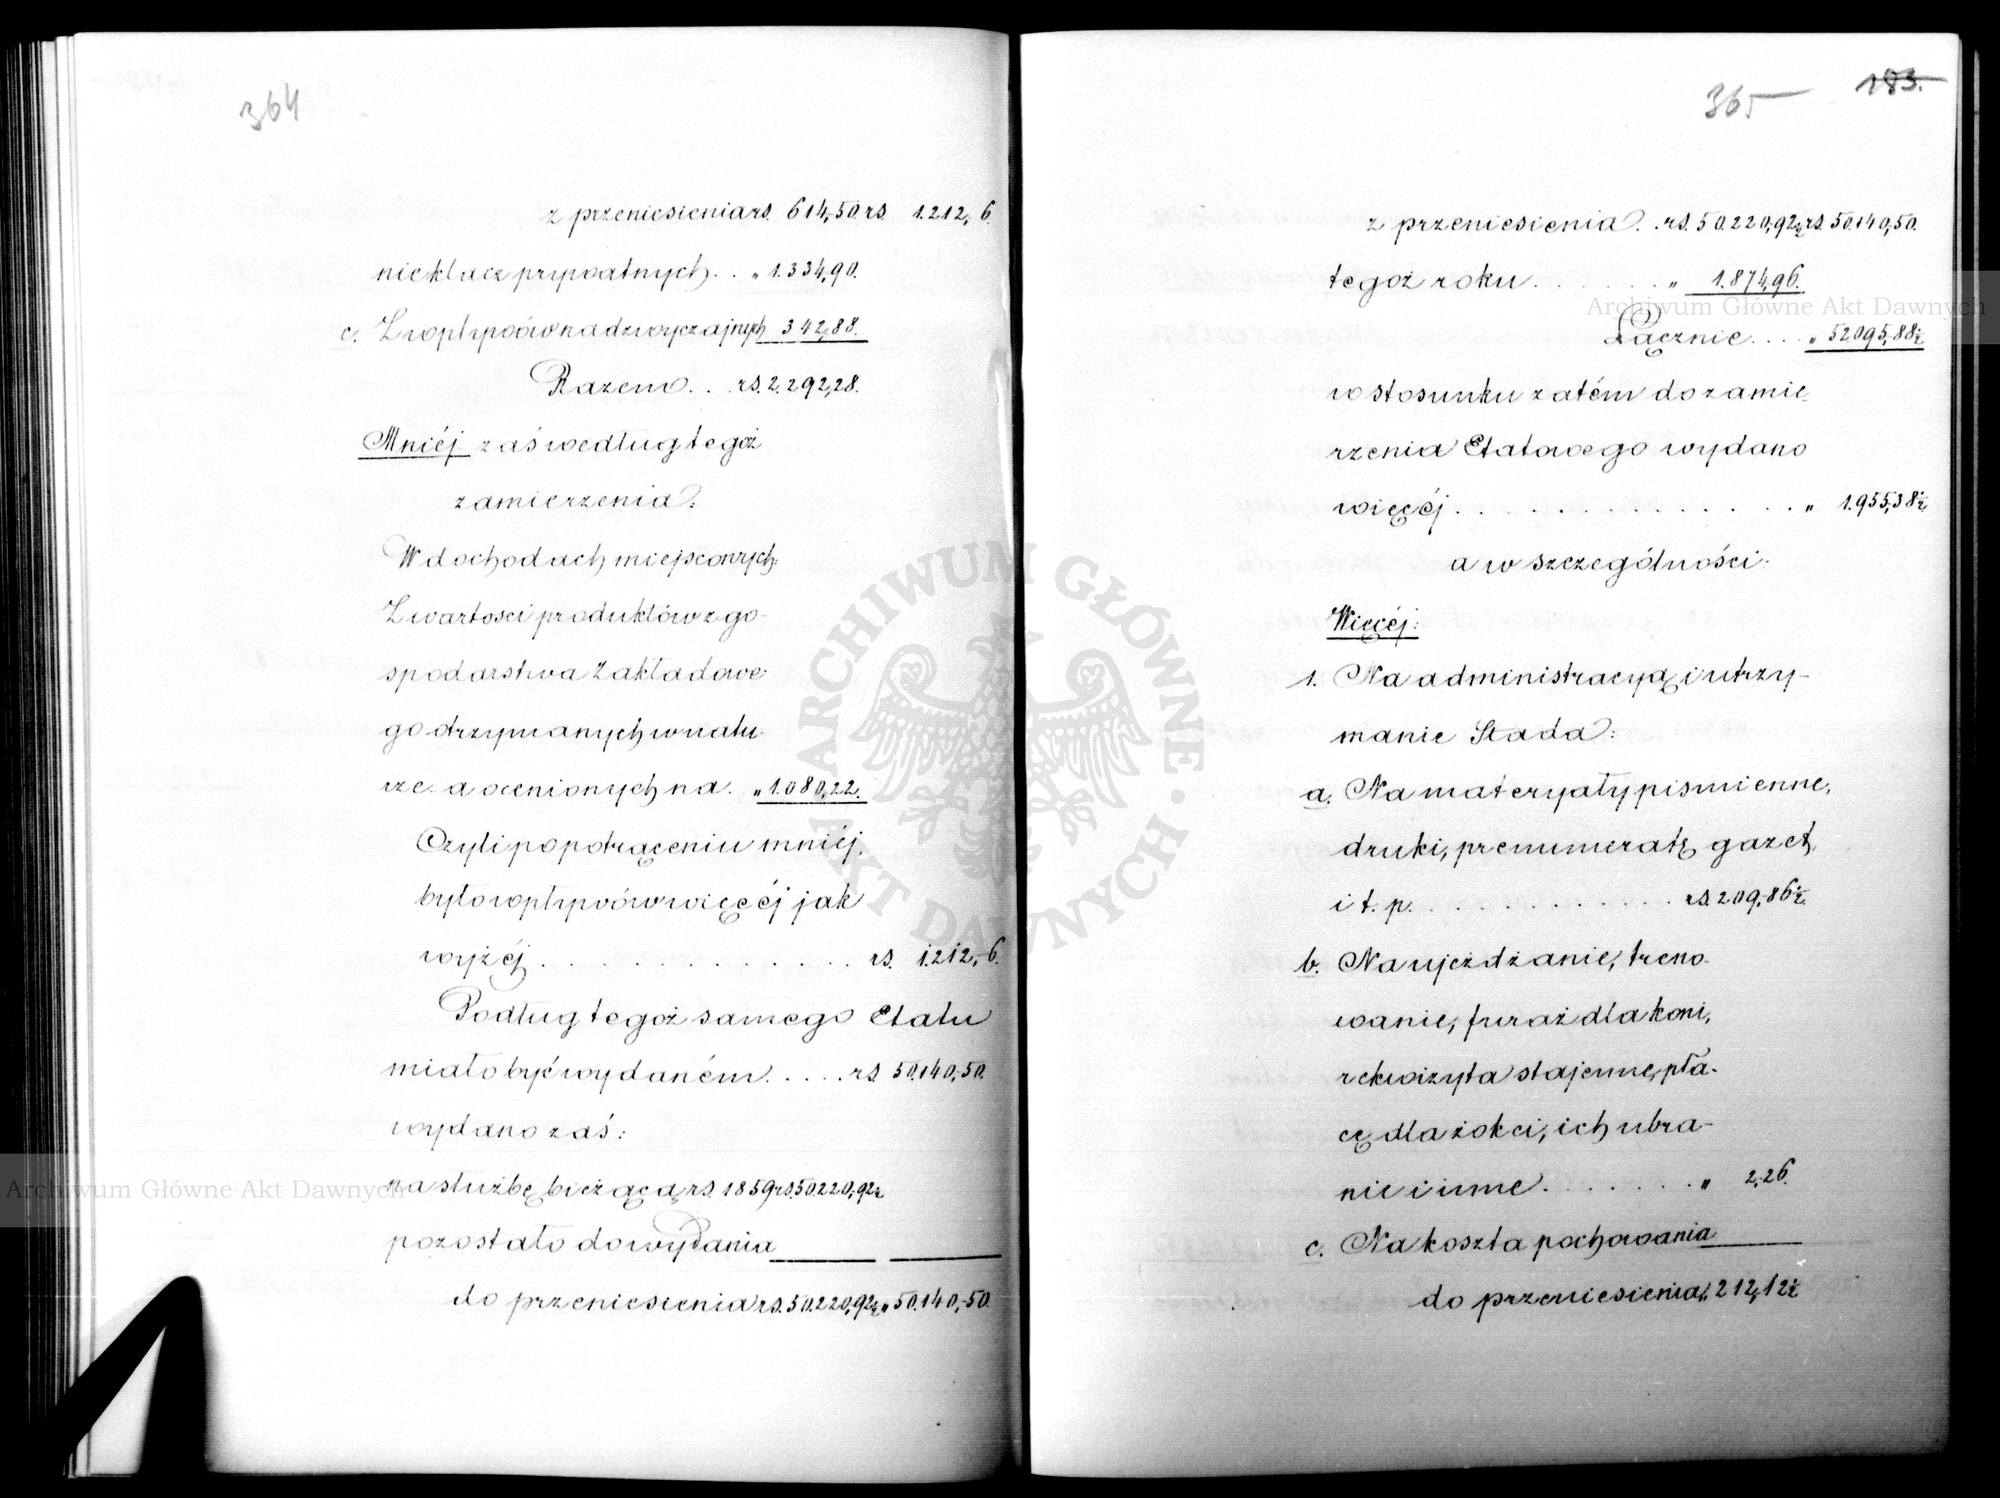 364
z przeniesienia rs. 614,50. rs. 1.212,-6.
nie klacz prywatnych. . . „ 1.334,90.
c. Z wpływów nadzwyczajnych 342,88.
Razem. . . rs. 2.292,28.
Mniéj zaś według tegoż
zamierzenia:
W dochodach miejscowych:
Z wartości produktów z go-
spodarstwa Zakładowe-
go otrzymanych w natu-
rze a ocenionych na . „ 1.080,22.
Czyli po potrąceniu mniéj,
było wpływów więcéj jak
wyżéj . . . . . . . . . . . . rs. 1.212,-6.
Podług tegoż samego Etatu
miało być wydaném. . . . . rs. 50.140,50.
wydano zaś:
na służbę bieżącą rs. 1859 rs. 50.220,92½
pozostało do wydania
do przeniesienia rs. 50.220,92½ „ 50.140,-50.
365
183.
z przeniesienia. . rs. 50.220,92½ rs. 50.140,50.
tegoż roku . . . . . . . „ 1.874,96.
Łącznie. . . . „ 52.095,88½
w stosunku zatém do zamie-
rzenia Etatowego wydano
więcéj . . . . . . . . . . . . . . „ 1.955,38½
a w szczególności:
Więcéj:
1. Na administracyą i utrzy-
manie Stada:
a. Na materyały piśmienne,
druki, prenumeratę gazet,
i t. p. . . . . . . . . . . . rs. 209,86½
b. Na ujeżdżanie, treno-
wanie, furaż dla koni,
rekwizyta stajenne, pła-
cę dla żokei, ich ubra-
nie i inne. . . . . . . „ 2,26.
c. Na koszta pochowania
do przeniesienia „ 212,12½
Archiwum Główne Akt Dawnych
Archiwum Główne Akt Dawnych
ARCHIWUM GŁÓWNE • AKT DAWNYCH •